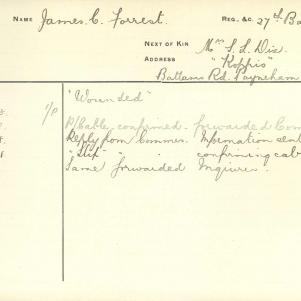 NAME James C. Forrest. REG. &C. 27th Ba
NEXT OF KIN Mrs S. L. Dix.
ADDRESS "Koppis"
Battams Rd. Payneham
1/P "Wounded"
P/Cable confirmed. forwarded Com
Reply from Commn. Information sent
"Slip" " confirming cab
Same forwarded Inquirer.